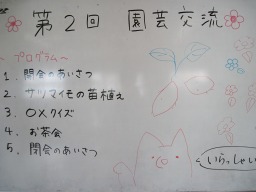 第2回 園芸交流
～プログラム～
1. 開会のあいさつ
2. サツマイモの苗植え
3. ○×クイズ
4. お茶会
5. 閉会のあいさつ
いらっしゃい